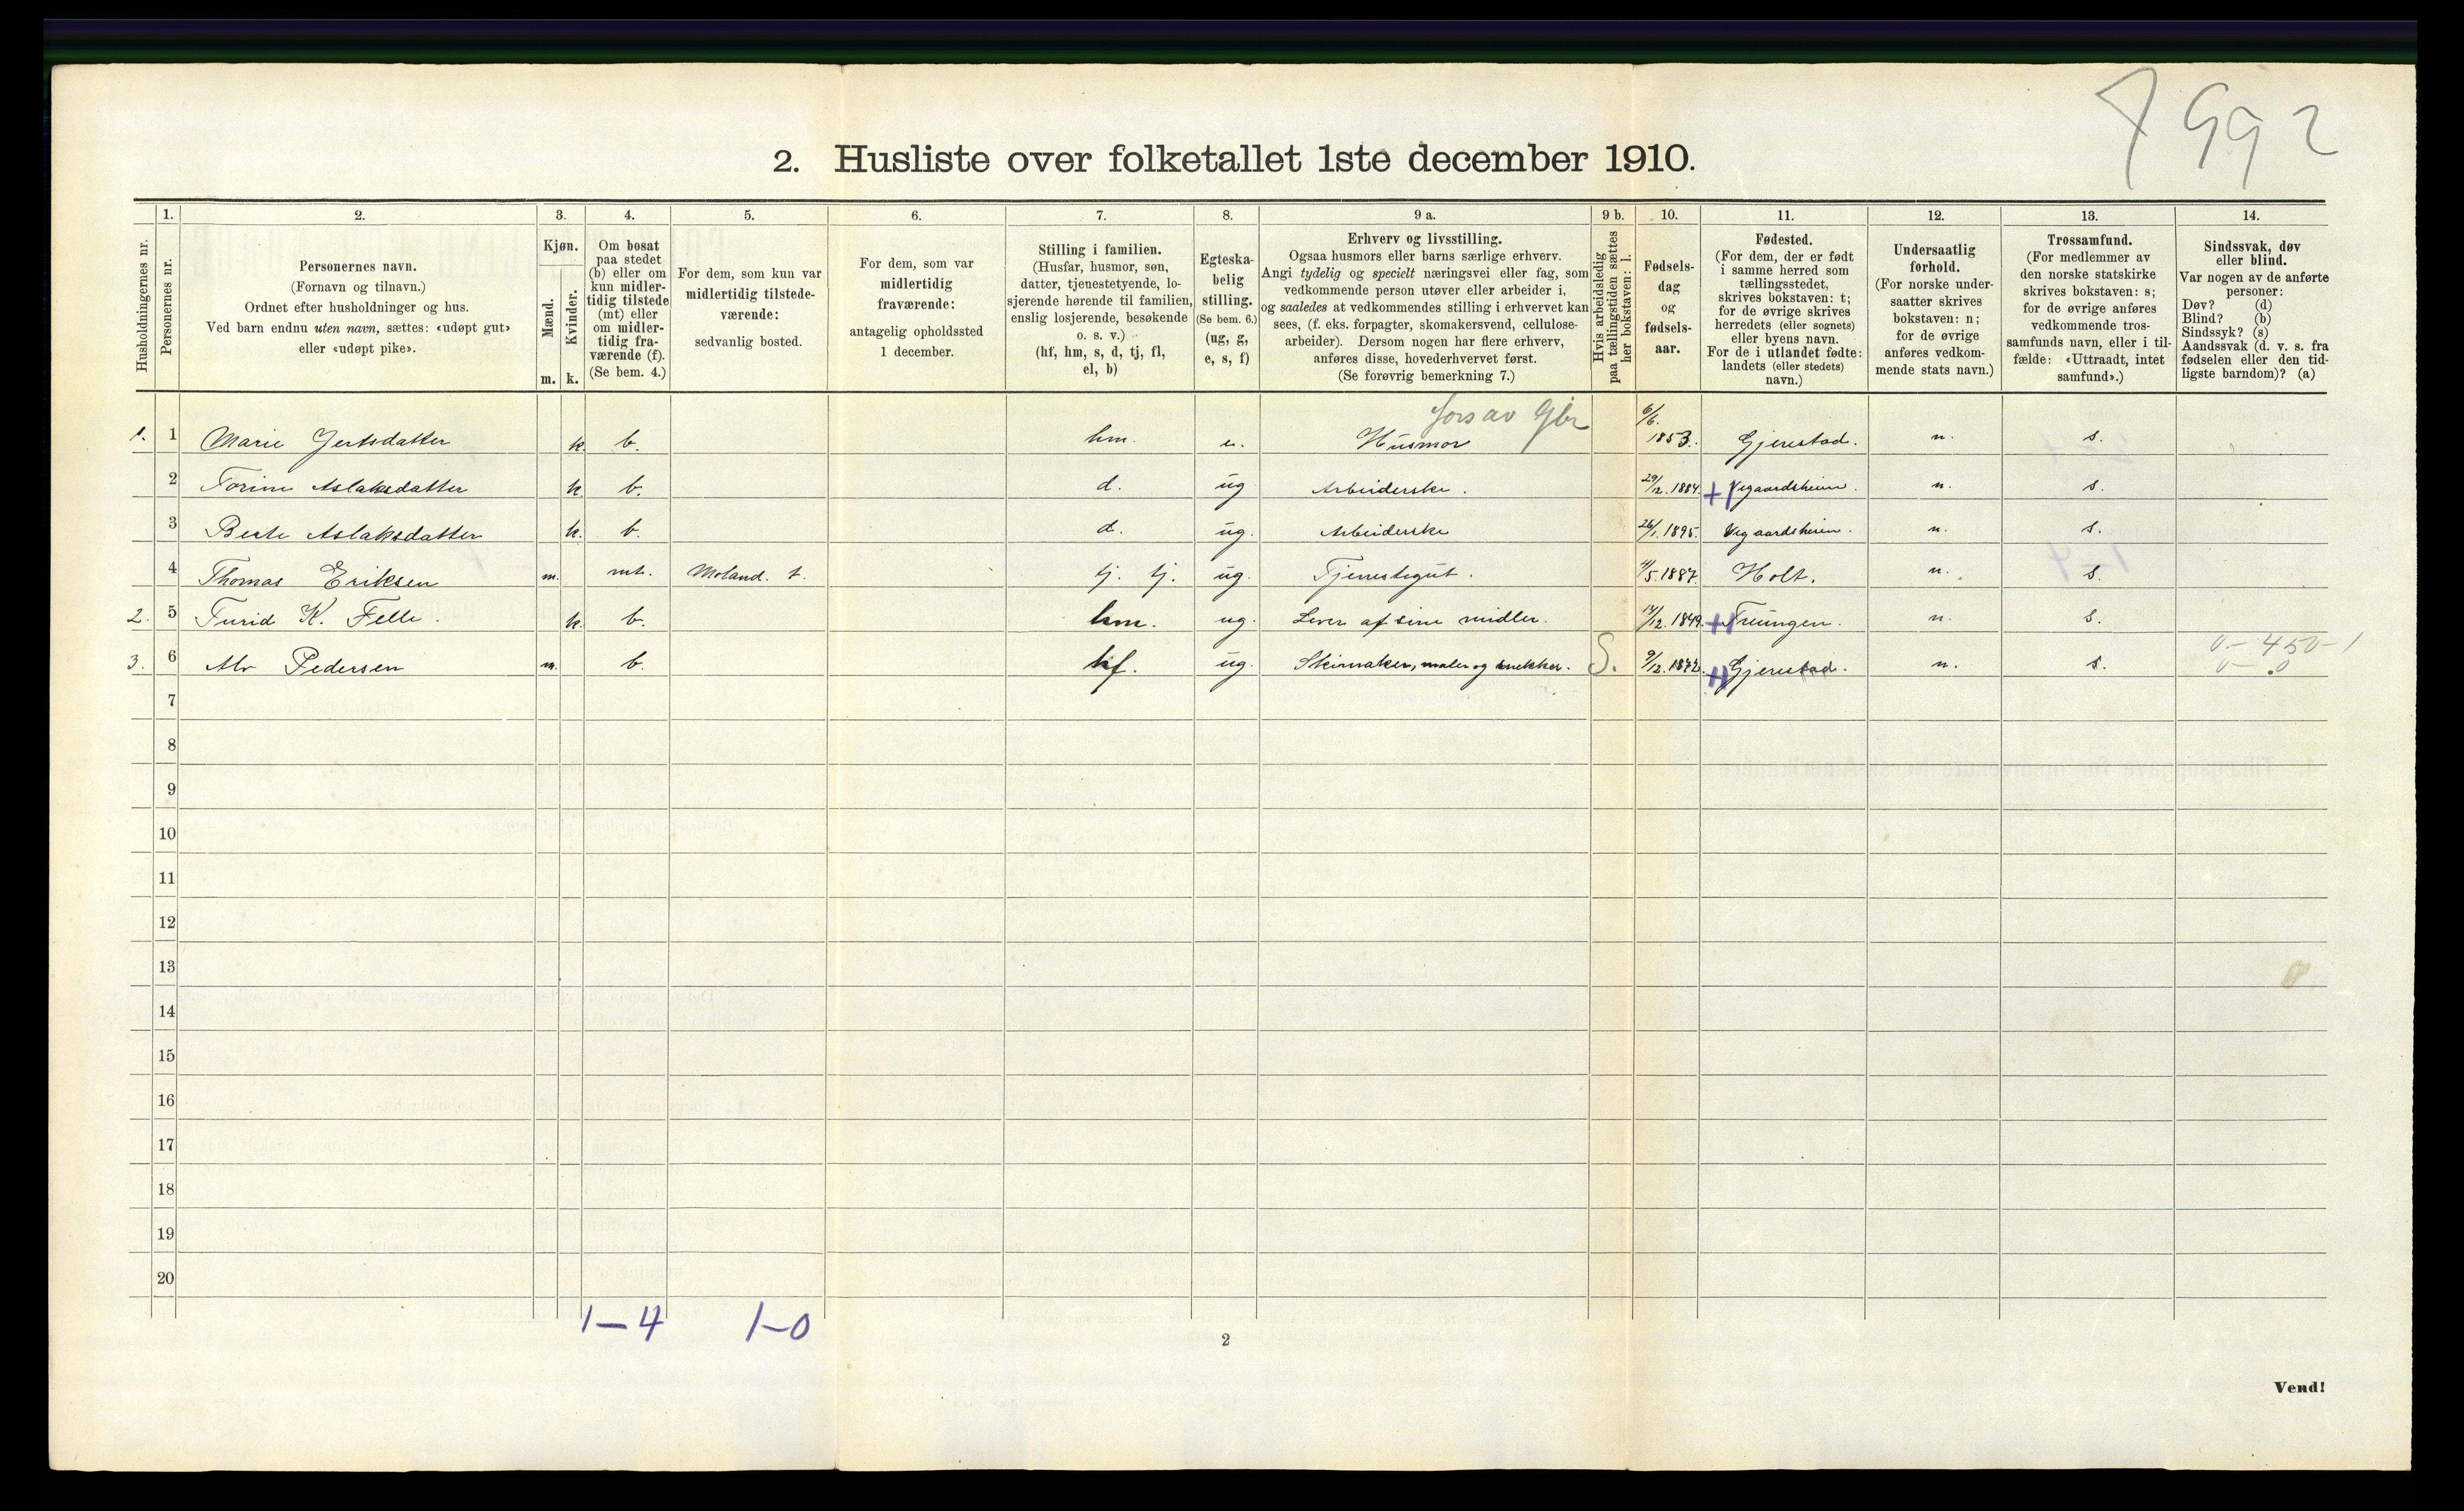 992
2. Husliste over folketallet 1ste december 1910.
1. 2. 3. 4. 5. 6. 7. 8. 9 a. 9 b. 10. 11. 12. 13. 14.
Husholdningernes nr.
Personernes nr.
Personernes navn.
(Fornavn og tilnavn.)
Ordnet efter husholdninger og hus.
Ved barn endnu uten navn, sættes: «udøpt gut»
eller «udøpt pike».
Kjøn.
Mænd.
Kvinder.
m. k.
Om bosat
paa stedet
(b) eller om
kun midler-
tidig tilstede
(mt) eller
om midler-
tidig fra-
værende (f).
(Se bem. 4.)
For dem, som kun var
midlertidig tilstede-
værende:
sedvanlig bosted.
For dem, som var
midlertidig
fraværende:
antagelig opholdssted
1 december.
Stilling i familien.
(Husfar, husmor, søn,
datter, tjenestetyende, lo-
sjerende hørende til familien,
enslig losjerende, besøkende
o. s. v.)
(hf, hm, s, d, tj, fl,
el, b)
Egteska-
belig
stilling.
(Se bem. 6.)
(ug, g,
e, s, f)
Erhverv og livsstilling.
Ogsaa husmors eller barns særlige erhverv.
Angi tydelig og specielt næringsvei eller fag, som
vedkommende person utøver eller arbeider i,
og saaledes at vedkommendes stilling i erhvervet kan
sees, (f. eks. forpagter, skomakersvend, cellulose-
arbeider). Dersom nogen har flere erhverv,
anføres disse, hovederhvervet først.
(Se forøvrig bemerkning 7.)
Hvis arbeidsledig
paa tællingstiden sættes
her bokstaven: l.
Fødsels-
dag
og
fødsels-
aar.
Fødested.
(For dem, der er født
i samme herred som
tællingsstedet,
skrives bokstaven: t;
for de øvrige skrives
herredets (eller sognets)
eller byens navn.
For de i utlandet fødte:
landets (eller stedets)
navn.)
Undersaatlig
forhold.
(For norske under-
saatter skrives
bokstaven: n;
for de øvrige
anføres vedkom-
mende stats navn.)
Trossamfund.
(For medlemmer av
den norske statskirke
skrives bokstaven: s;
for de øvrige anføres
vedkommende tros-
samfunds navn, eller i til-
fælde: «Uttraadt, intet
samfund».)
Sindssvak, døv
eller blind.
Var nogen av de anførte
personer:
Døv? (d)
Blind? (b)
Sindssyk? (s)
Aandssvak (d. v. s. fra
fødselen eller den tid-
ligste barndom)? (a)
fors av Gbr
1. 1 Marie Jertsdatter k. b. hm. e. Husmor 6/6. 1853. Gjerestad. n. s.
2 Torine Aslaksdatter k. b. d. ug Arbeiderske. 29/12. 1884. + Vegaardsheien. n. s.
3 Berte Aslaksdatter k. b. d. ug. Arbeiderske 26/1. 1895. Vegaardsheien. n. s.
4 Thomas Eriksen m. mt. Moland. t. tj. tj. ug. Tjenestegut. 4/5. 1887. Holt. n. s.
2. 5 Turid K. Felle. k. b. hm. ug. Lever af sine midler. 14/12. 1849. Treungen. n. s.
3. 6 Alv Pedersen m. b. hf. ug. Skinmaker, maler og snekker. S. 9/12. 1872. Gjerestad. n. s.
0-450-1
0-0
7
8
9
10
11
12
13
14
15
16
17
18
19
20
1-4 1-0
2
Vend!